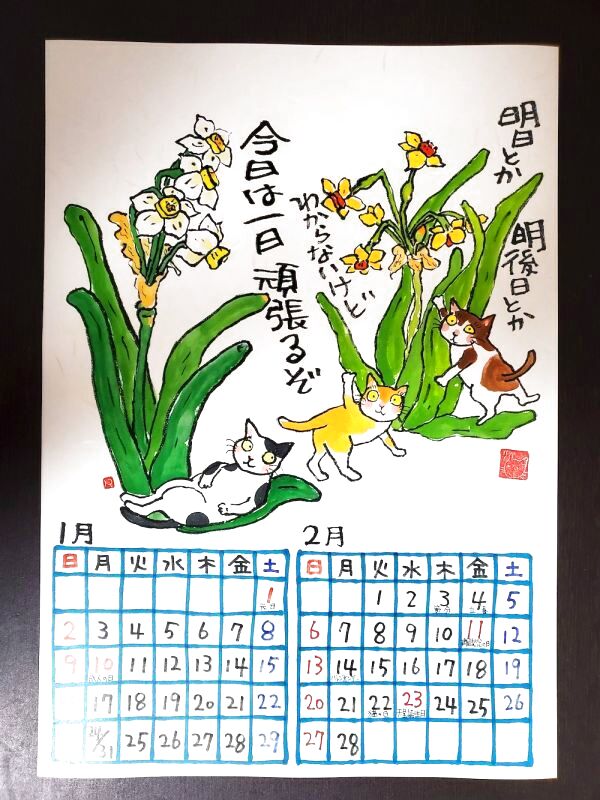 明日とか
明後日とか
わからないけど
今日は一日
頑張るぞ
1月
日 月 火 水 木 金 土
1
元日
2 3 4 5 6 7 8
9 10 11 12 13 14 15
成人の日
17 18 19 20 21 22
24/31 25 26 27 28 29
2月
日 月 火 水 木 金 土
1 2 3 4 5
節分 立春
6 7 8 9 10 11 12
建国記念の日
13 14 15 16 17 18 19
20 21 22 23 24 25 26
猫の日 天皇誕生日
27 28